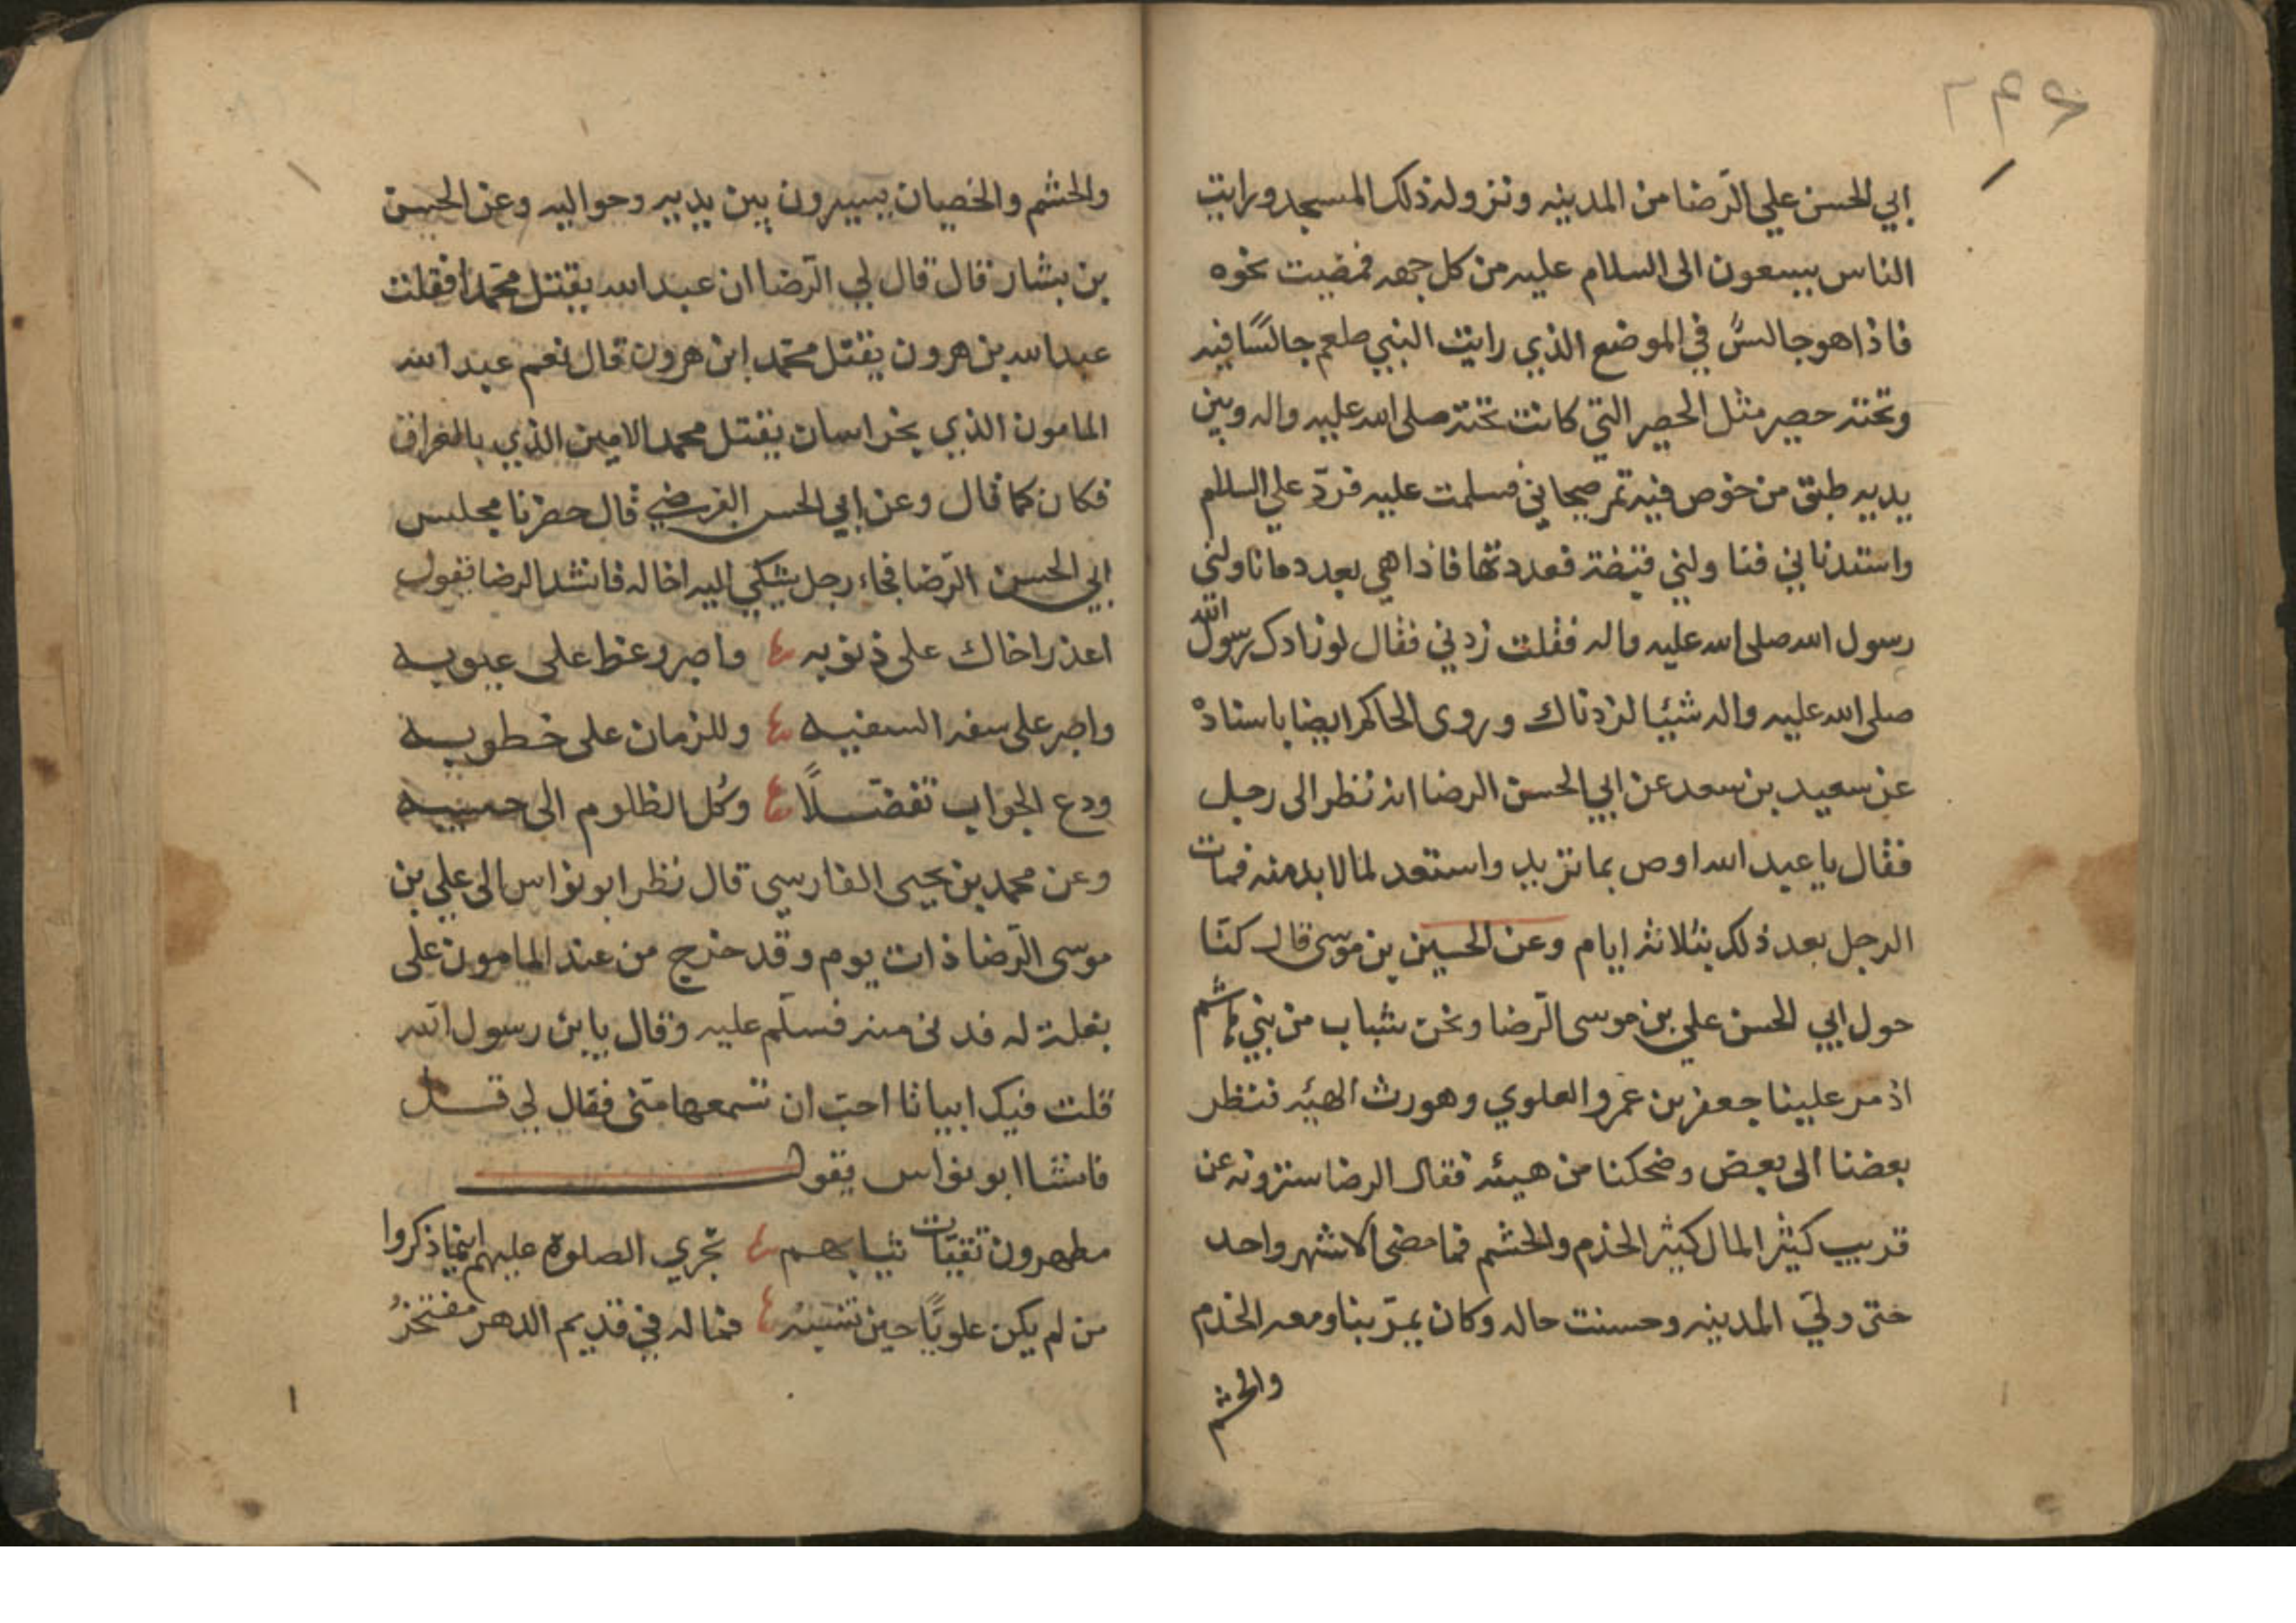 ٢٤٦
ابي الحسن علي الرّضا من المدينه ونزوله ذلك المسجد ورايت
الناس يسعون الى السلام عليه من كل جهه فمضيت نحوه
فاذا هو جالسٌ في الموضع الذي رايت النبي صلعم جالسًا فيه
وتحته حصير مثل الحصير التي كانت تحته صلى الله عليه واله وبين
يديه طبق من خوص فيه تمر صيحاني فسلمت عليه فردّ علي السلام
واستدناني فناولني قبضة فعددتها فاذا هي بعدد ما ناولني
رسول الله صلى الله عليه واله فقلت زدني فقال لو زادك رسول الله
صلى الله عليه واله شيئا لزدناك وروى الحاكم ايضا باسناده
عن سعيد بن سعد عن ابي الحسن الرضا انه نظر الى رجل
فقال يا عبد الله اوص بما تريد واستعد لما لا بد منه فمات
الرجل بعد ذلك بثلاثه ايام وعن الحسين بن موسى قال كنّا
حول ابي الحسن علي بن موسى الرّضا ونحن شباب من بني هاشم
اذ مر علينا جعفر بن عمرو العلوي وهو رث الهيئه فنظر
بعضنا الى بعض وضحكنا من هيئه فقال الرضا سترونه عن
قريب كثير المال كثير الخدم والحشم فما مضى الا شهر واحد
حتى ولي المدينه وحسنت حاله وكان يمرّ بنا ومعه الخدم
والحشم
والحشم والخصيان يسيرون بين يديه وحواليه وعن الحسن
بن بشار قال قال لي الرّضا ان عبد الله يقتل محمّدا فقلت
عبد الله بن هرون يقتل محمّد ابن هرون قال نعم عبد الله
المامون الذي بخراسان يقتل محمد الامين الذي بالعراق
فكان كما قال وعن ابي الحسن القرضي قال حضرنا مجلس
ابي الحسن الرّضا فجاء رجل يشكي اليه اخا له فانشد الرضا تقول
اعذر اخاك على ذنوبه واصبر وغط على عيوبه
واصبر على سفه السفيه وللزمان على خطوبه
ودع الجواب تفضّلاً وكل الظلوم الى حسيبه
وعن محمد بن يحيى الفارسي قال نظر ابو نواس الى علي بن
موسى الرّضا ذات يوم وقد خرج من عند المامون على
بغلة له فدنى منه فسلّم عليه وقال يا بن رسول الله
قلت فيك ابياتا احبّ ان تسمعها منّي فقال لي قـــل
فانشا ابو نواس يقول
مطهرون نقيّات ثيابهم تجري الصلوة عليهم اينما ذكروا
من لم يكن علويًّا حين تنسبه فما له في قديم الدهر مفتخرُ